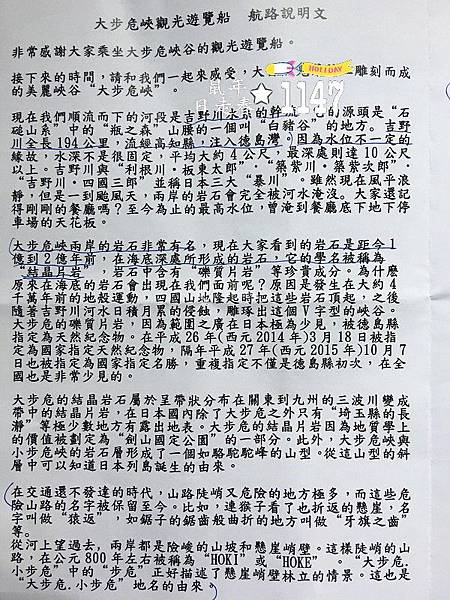 大步危峽觀光遊覽船　航路說明文
非常感謝大家乘坐大步危峽谷的觀光遊覽船。
接下來的時間，請和我們一起來感受，大 雕刻而成
的美麗峽谷“大步危峽”。
HOLIDAY
鼠年
日本春
1147
現在我們順流而下的河段是吉野川水系的幹流，它的源頭是“石
磓山系”中的“瓶之森”山腰的一個叫“白猪谷”的地方。吉野
川全長194公里，流經高知縣，注入德島灣。因為水位不一定的
緣故，水深不是很固定，平均大約4公尺，最深處則達10公尺
以上。吉野川與“利根川・板東太郎”、“築紫川・築紫次郎”、
“吉野川・四國三郎”並稱日本三大“暴川”。雖然現在風平浪
靜，但是一到颱風天，兩岸的岩石會完全被河水淹沒。大家還記
得剛剛的餐廳嗎？至今為止的最高水位，曾淹到餐廳底下地下停
車場的天花板。
大步危峽兩岸的岩石非常有名，現在大家看到的岩石是距今1
億到2億年前，在海底深處所形成的岩石，它的學名被稱為
“結晶片岩”，岩石中含有“礫質片岩”等珍貴成分。為什麼
原來在海底的岩石會出現在我們面前呢？原因是發生在大約4
千萬年前的地殼運動，四國山地隆起時把這些岩石頂起，之後
隨著吉野川河水日積月累的侵蝕，雕琢出這個V字型的峽谷。
大步危的礫質片岩，因為範圍之廣在日本極為少見，被德島縣
指定為天然紀念物。在平成26年(西元2014年)3月18日被指
定為國家指定天然紀念物，隔年平成27年(西元2015年)10月7
日也被指定為國家指定名勝，重複指定不僅是德島縣初次，在全
國也是非常少見的。
大步危的結晶岩石屬於呈帶狀分布在關東到九州的三波川變成
帶中的結晶片岩，在日本國內除了大步危之外只有“埼玉縣的長
瀞”等極少數地方有露出地表。大步危的結晶片岩因為地質學上
的價值被劃定為“劍山國定公園”的一部分。此外，大步危峽與
小步危峽的岩石層形成了一個如駱駝駝峰的山型。從這山型的斜
層中可以知道日本列島誕生的由來。
在交通還不發達的時代，山路陡峭又危險的地方極多，而這些危
險山路的名字被保留至今。比如，連猴子看了也折返的懸崖，名
字叫做“猿返”，如鋸子的鋸齒般曲折的地方叫做“牙旗之齒”
等。
從河上望過去，兩岸都是險峻的山坡和懸崖峭壁。這樣陡峭的山
路，在公元800年左右被稱為“HOKI”或“HOKE”。“大步危.
小步危”中的“步危”正好描述了懸崖峭壁林立的情景。這也是
“大步危.小步危”地名的由來。